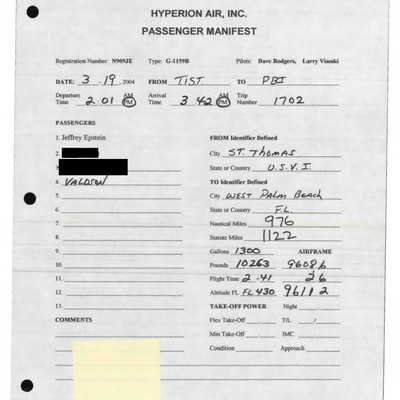 HYPERION AIR, INC.
PASSENGER MANIFEST
Registration Number: N909JE Type: G-1159B Pilots: Dave Rodgers, Larry Visoski
DATE: 3 . 19 , 2004 FROM TIST TO PBI
Departure Time 2 01 AM PM Arrival Time 3 42 AM PM Trip Number 1702
PASSENGERS
1. Jeffrey Epstein FROM Identifier Defined
2. City ST. THOMAS
3. State or Country U.S.V.I.
4. VALDSON TO Identifier Defined
5. City WEST PALM BEACH
6. State or Country FL.
7. Nautical Miles 976
8. Statute Miles 1122
9. Gallons 1300 AIRFRAME
10. Pounds 10263 96086
11. Flight Time 2.41 26
12. Altitude FL FL430 96112
13. TAKE-OFF POWER Night
COMMENTS Flex Take-Off T/L /
Min Take-Off IMC
Condition Approach